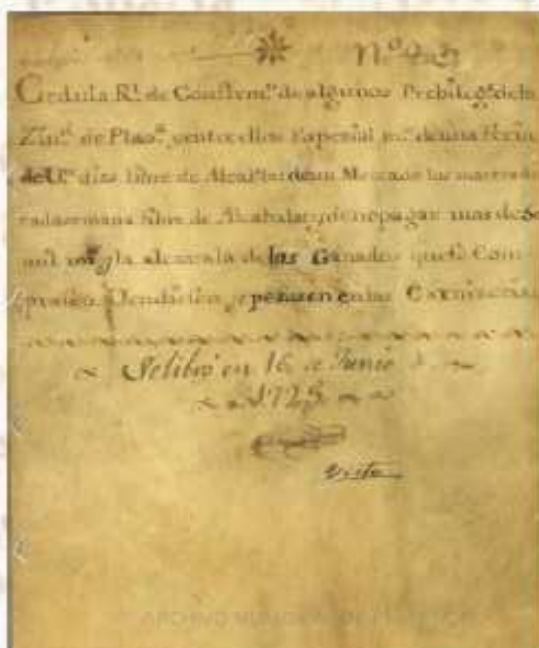 Nº
Cedula Rl. de Confirmn. de algunos Prebilegs. dela
Ziud. de Plasa. entre ellos Espezial me. de una Feria
de Us. dias libre de Alcabalas de un Mercado los martes de
cada semana libre de Alcabalas, y de no pagar mas de
mil mrs. la alcavala de los Ganados que se Com-
praren, Vendieren, y pesaren en las Carnizerias
Se libro en 16 de Junio
1725
Visto
ARCHIVO MUNICIPAL DE